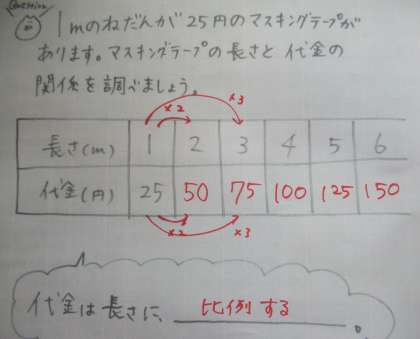 Question
1mのねだんが25円のマスキングテープが
あります。マスキングテープの長さと代金の
関係を調べましょう。
×2 ×3
長さ(m) 1 2 3 4 5 6
代金(円) 25 50 75 100 125 150
×2 ×3
代金は長さに、比例する。